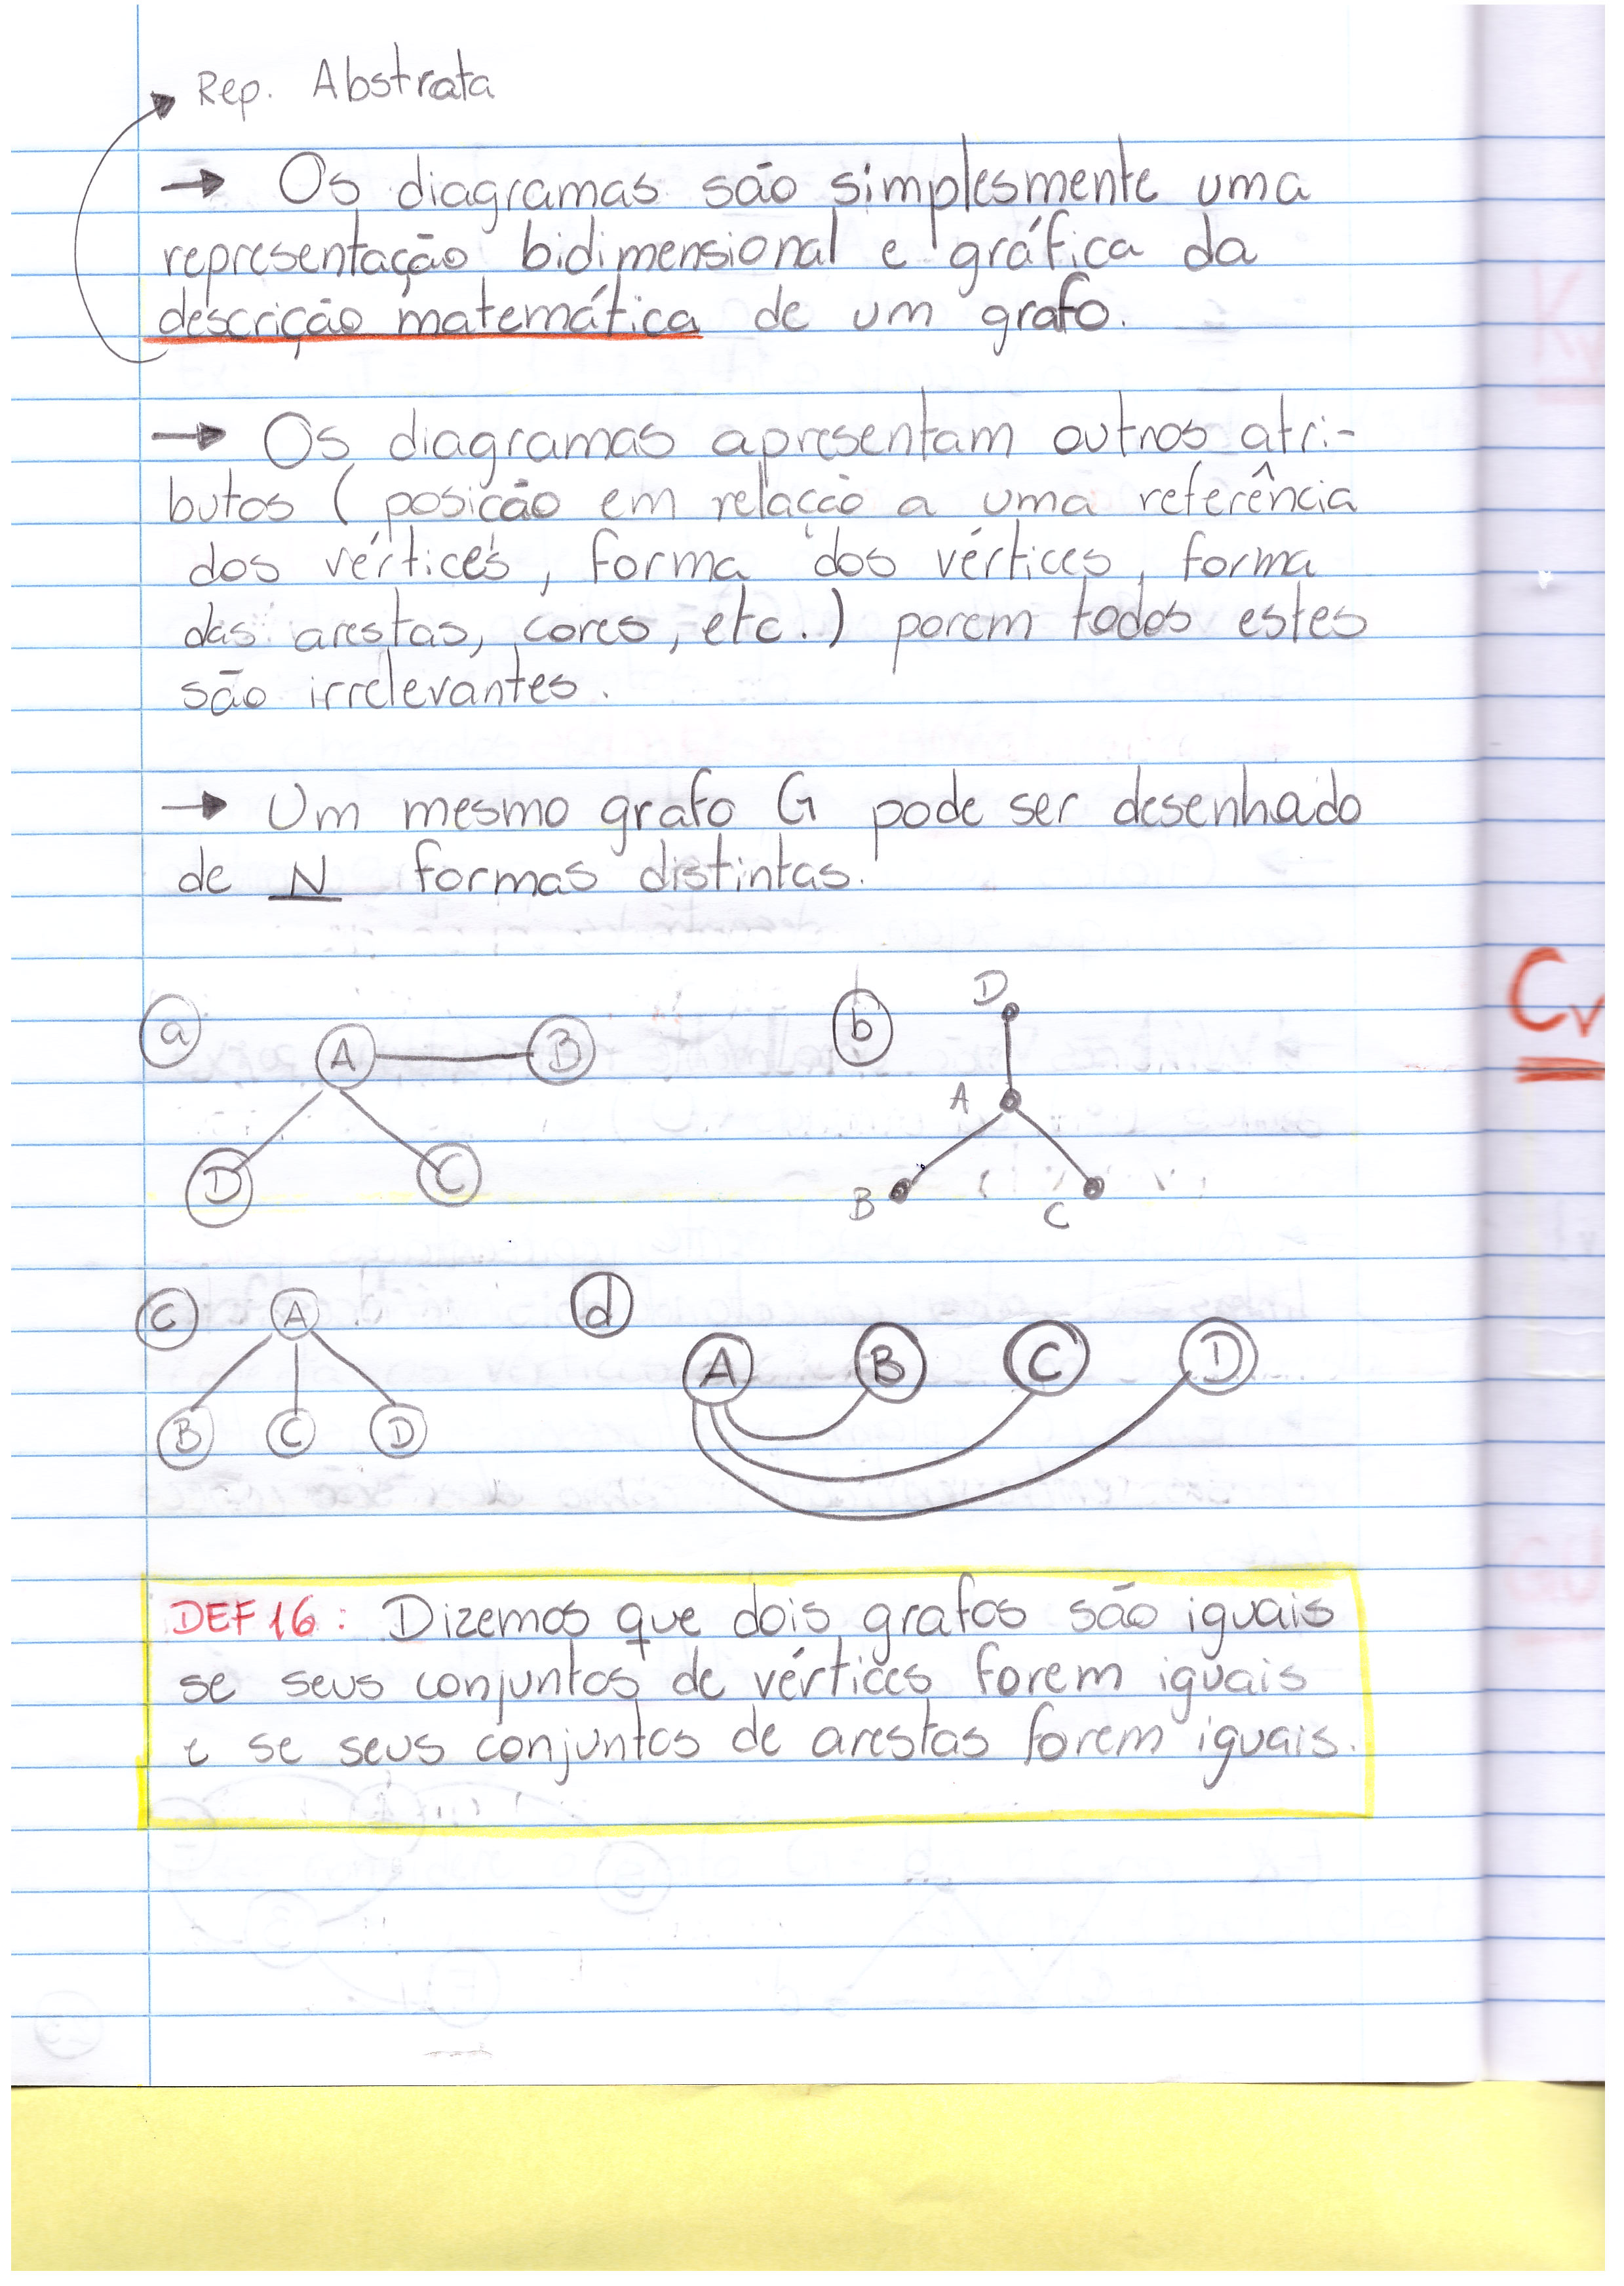 Rep. Abstrata
→ Os diagramas são simplesmente uma
representação bidimensional e gráfica da
descrição matemática de um grafo.
→ Os diagramas apresentam outros atri-
butos (posição em relação a uma referência
dos vértices, forma dos vértices, forma
das arestas, cores, etc.) porem todos estes
são irrelevantes.
→ Um mesmo grafo G pode ser desenhado
de N formas distintas.
a
A B
D C
b
D
A
B C
c
A
B C D
d
A B C D
Cv
DEF 16: Dizemos que dois grafos são iguais
se seus conjuntos de vértices forem iguais
e se seus conjuntos de arestas forem iguais.